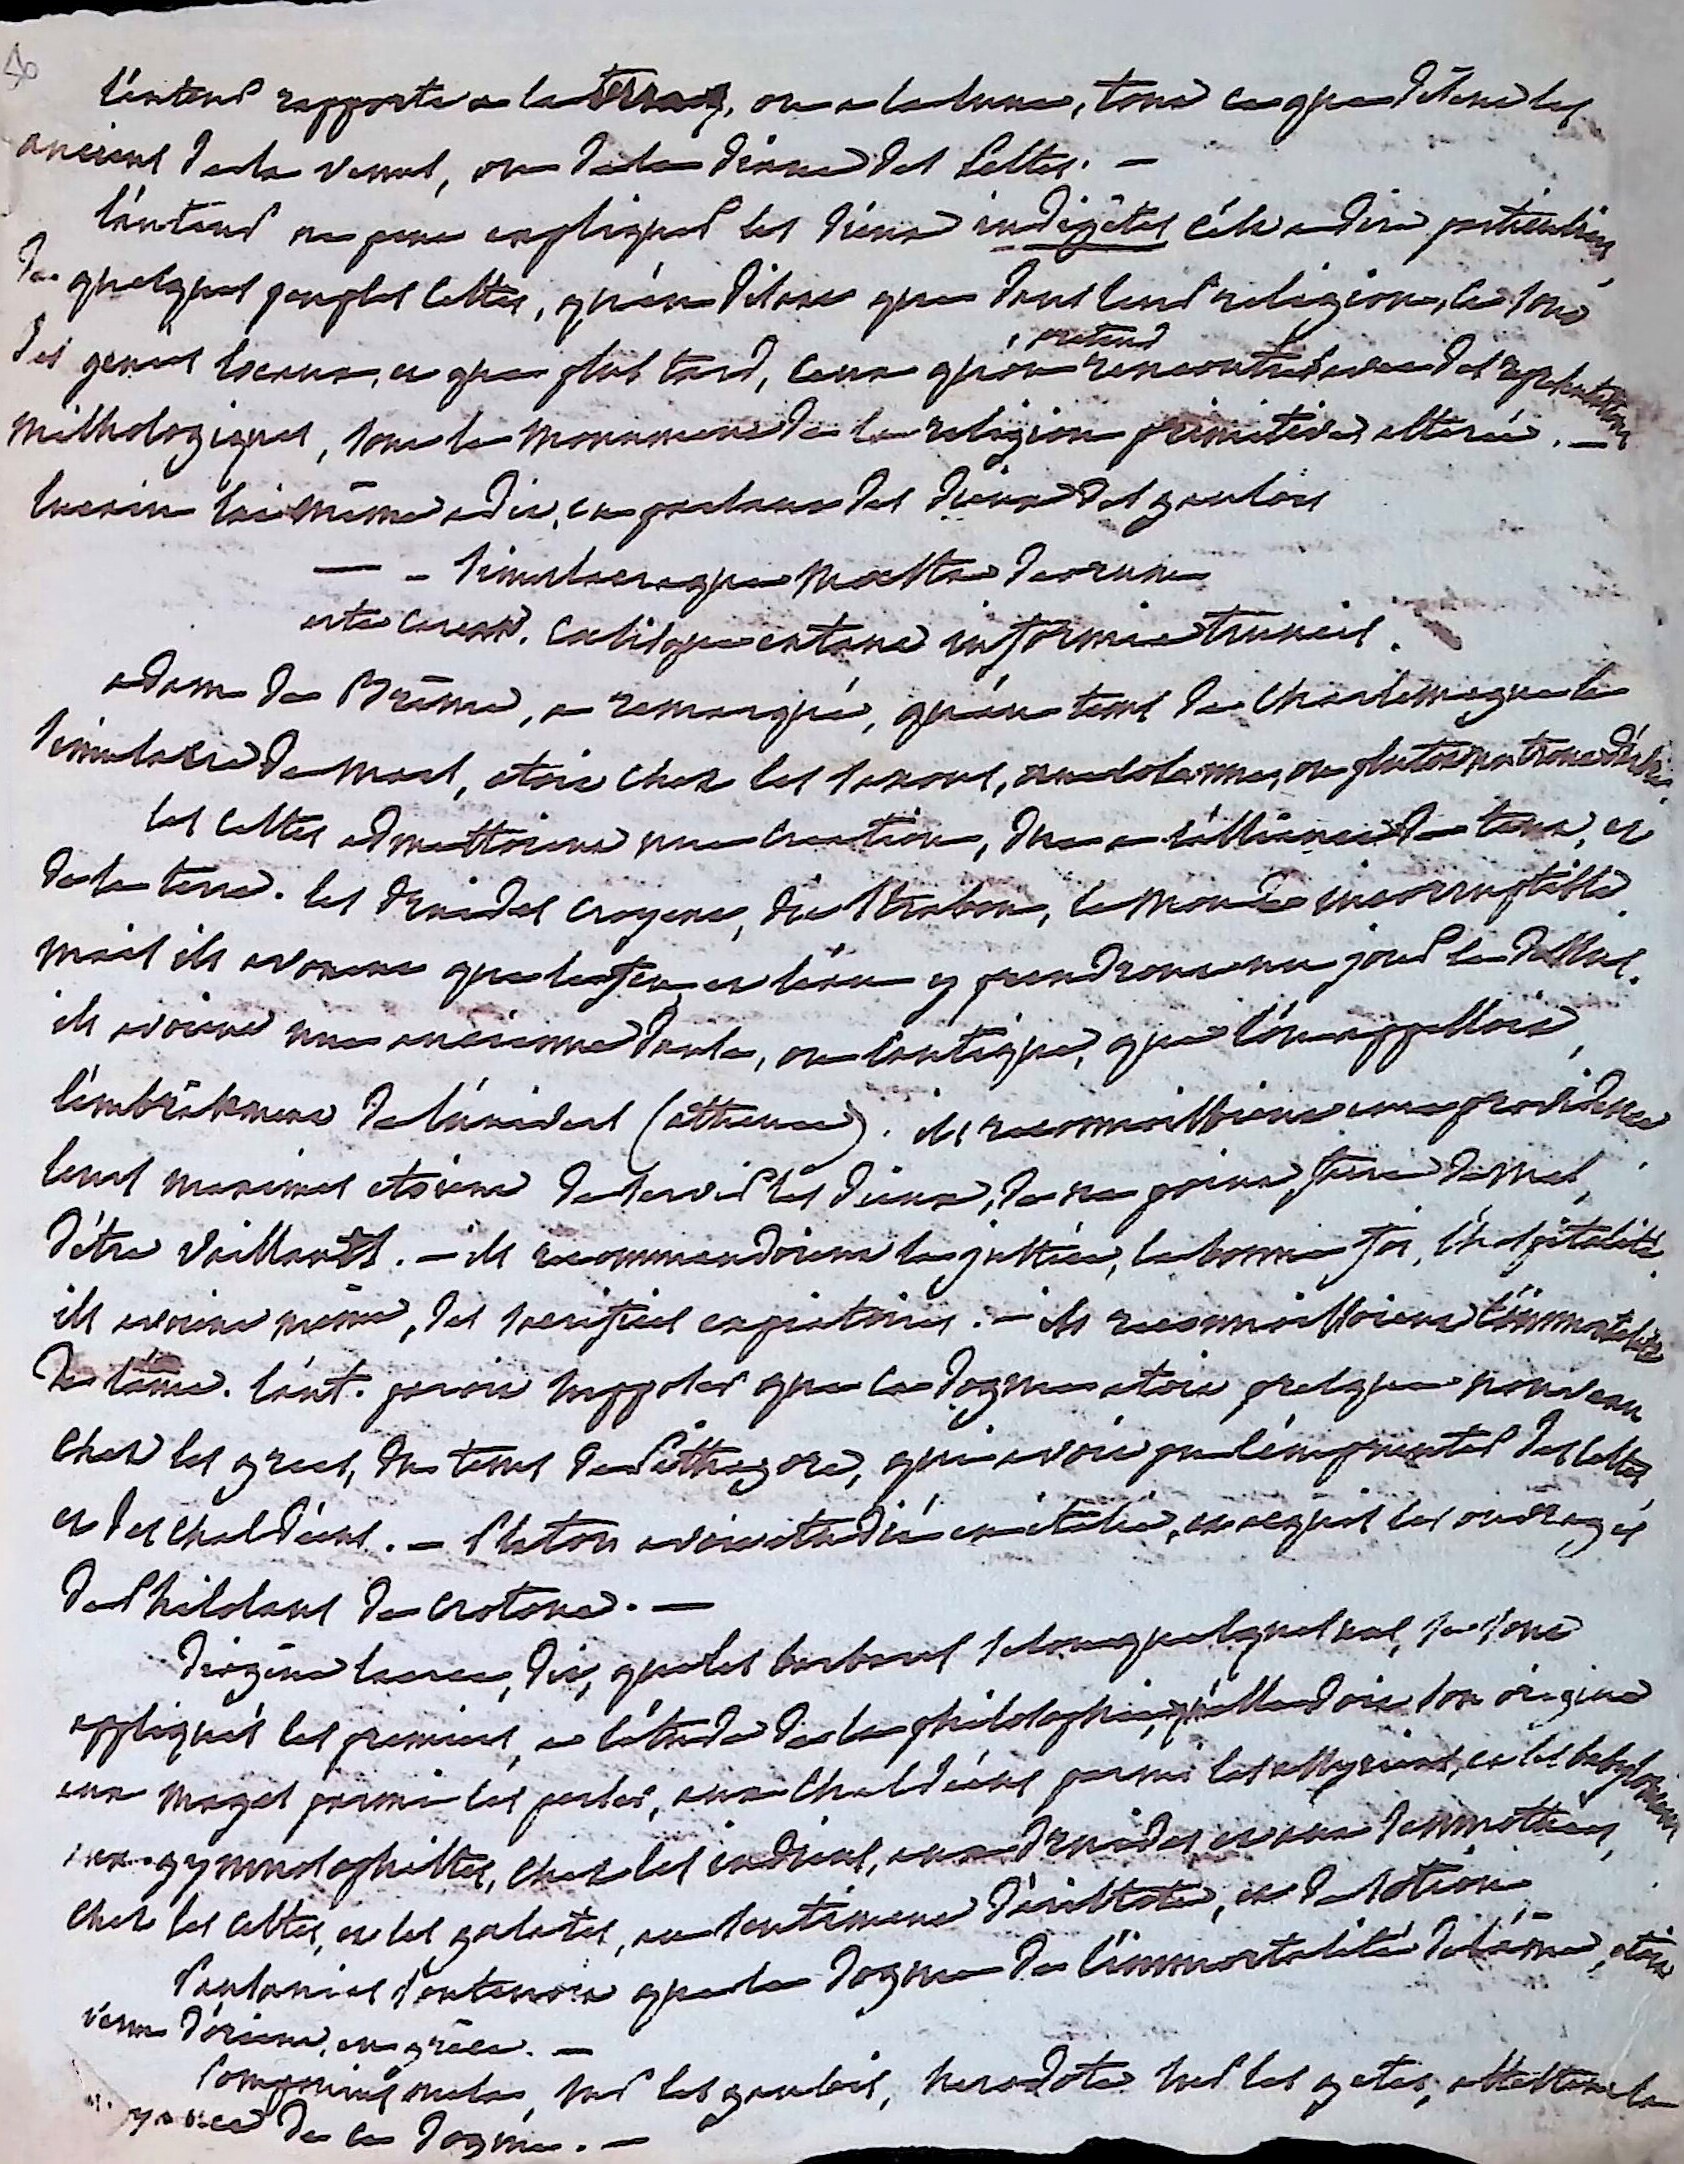 40
l'auteur rapporte a la terre, ou a la lune, tout ce que disent les
anciens de la venus, ou de la diane des Celtes. —
l'auteur ne peut expliquer les dieux indigètes c'est a dire particuliers,
de quelques peuples Celtes, qu'en disant que dans leur religion, ce sont
des genies locaux, et que plus tard, ceux qu'on
pretend
rencontrer avec des representations
mithologiques, sont le monument de la religion primitive alterée. —
lucain lui même a dit, en parlant des dieux des gaulois
— - simulacraque moesta deorum
arte carent. caesisque extant informia truncis.
adam de Brême, a remarqué, qu'au tems de Charlemagne le
simulacre de mars, etoit chez les saxons, une colonne, ou plutôt un tronc d'arbre.
les celtes admettoient une creation, due a l'alliance de teut, et
de la terre. les druides croyent, dit Strabon, le monde incorruptible.
mais ils avouent que le feu et l'eau y prendront un jour le dessus.
ils avoient une ancienne danse, ou cantique, que l'on appelloit,
l'embrâsement de l'univers (athenée). ils reconnoissoient une providence
leurs maximes etoient de servir les dieux, de ne point faire de mal,
d'être vaillants. — ils recommandoient la justice, la bonne foi, l'hospitalité.
ils avoient même, des sacrifices expiatoires. — ils reconnoissoient l'immortalité
de l'âme. l'aut. paroit supposer que ce dogme etoit presque nouveau
chez les grecs, du tems de Pithagore, qui avoit pu l'emprunter des Celtes,
et des chaldéens. — Platon avoit etudié en italie, et acquis les ouvrages
de Philolaus de crotone. —
diogène laerce, dit, que les barbares selon quelques uns, se sont
appliqués les premiers, a l'étude de la philosophie, qu'elle doit son origine
aux mages parmi les perses, aux Chaldéens parmi les assyriens, et les babyloniens
aux gymnosophistes, chez les indiens, aux druides, et aux semnothées,
chez les celtes, et les galates, au sentiment d'aristote, et de sotion.
Pausanias soutenoit que le dogme de l'immortalité de l'âme, etoit
venu d'orient, en grèce. —
Pomponius mela, sur les gaulois, herodote sur les getes, attestent la
croyance de ce dogme. —